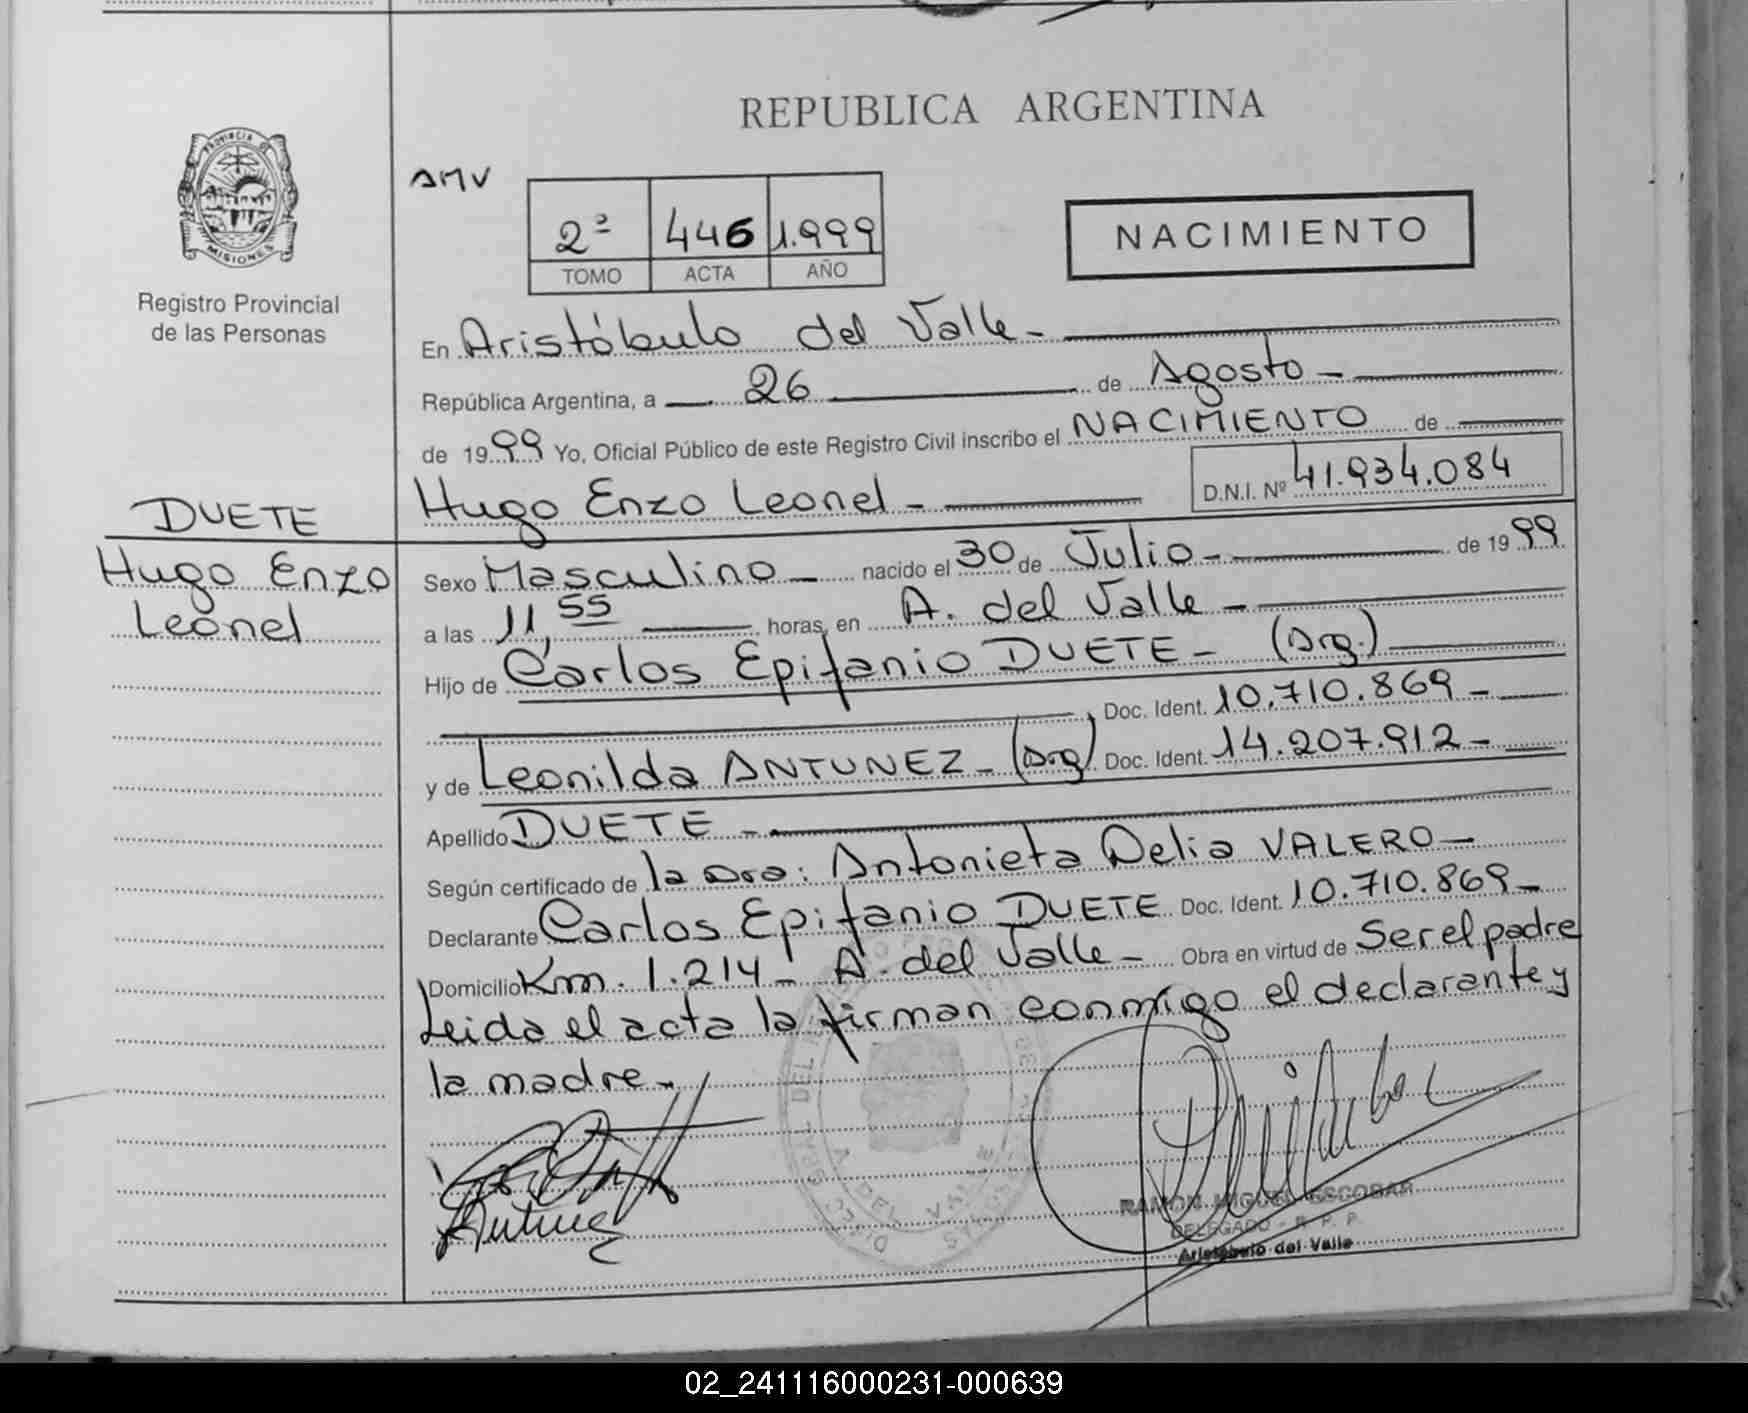 REPUBLICA ARGENTINA
PROVINCIA DE MISIONES
Registro Provincial
de las Personas
AMV
2º 446 1.999
TOMO ACTA AÑO
NACIMIENTO
En Aristóbulo del Valle -
República Argentina, a 26 de Agosto -
de 1999 Yo, Oficial Público de este Registro Civil inscribo el NACIMIENTO de
Hugo Enzo Leonel - D.N.I. Nº 41.934.084
DUETE
Hugo Enzo
Leonel
Sexo Masculino - nacido el 30 de Julio - de 1999
a las 11,55 horas, en A. del Valle -
Hijo de Carlos Epifanio DUETE - (Arg.)
, Doc. Ident. 10.710.869 -
y de Leonilda ANTUNEZ - (Arg) Doc. Ident. 14.207.912 -
Apellido DUETE -
Según certificado de la Dra: Antonieta Delia VALERO -
Declarante Carlos Epifanio DUETE Doc. Ident. 10.710.869 -
Domicilio Km. 1.214 - A. del Valle - Obra en virtud de Ser el padre
Leida el acta la firman conmigo el declarante y
la madre -
RAMON MIGUEL ESCOBAR
DELEGADO - R. P. P.
Aristóbulo del Valle
02_241116000231-000639